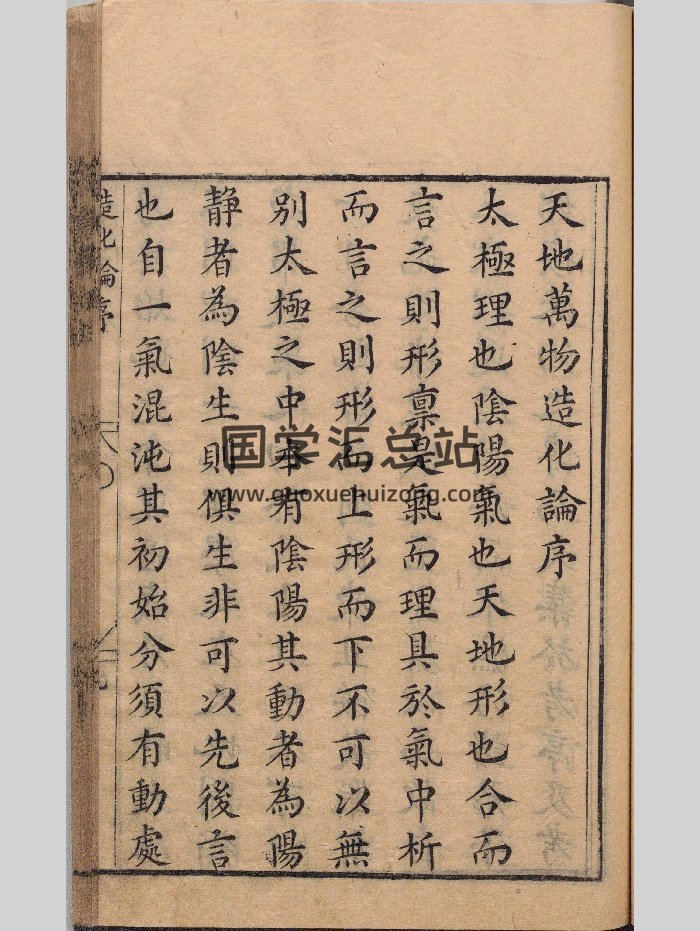 天地萬物造化論序
太極理也陰陽氣也天地形也合而
言之則形禀是氣而理具於氣中析
而言之則形而上形而下不可以無
别太極之中本有陰陽其動者為陽
静者為陰生則俱生非可以先後言
也自一氣混沌其初始分須有動處
造化論序
国学汇总站
www.guoxuehuizong.com